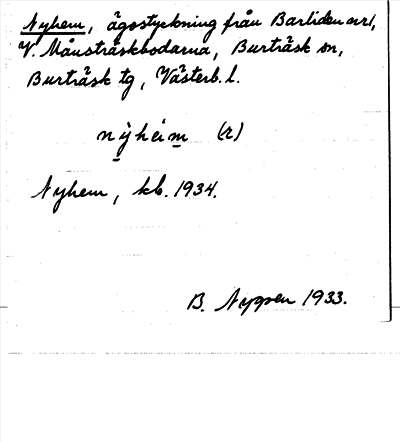 Nyhem, ägostyckning från Barliden nr 1,
V. Månsträskbodarna, Burträsk sn,
Burträsk tg, Västerb. l.
nỳhéim (r)
Nyhem, kb. 1934.
B. Nygren 1933.